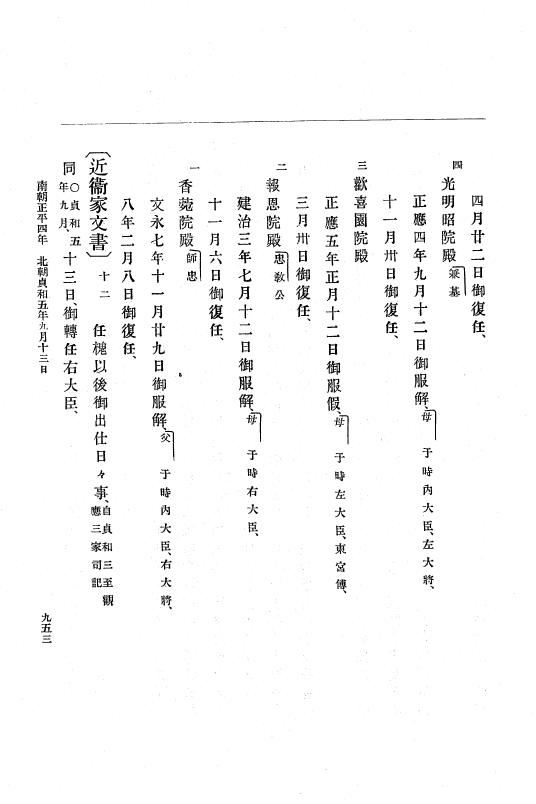 四月廿二日御復任、
四 光明昭院殿 兼基
正應四年九月十二日御服解、母 于時内大臣、左大將、
十一月卅日御復任、
三 歡喜園院殿
正應五年正月十二日御服假、母 于時左大臣、東宮傅、
三月卅日御復任、
二 報恩院殿 忠敎公
建治三年七月十二日御服解、母 于時右大臣、
十一月六日御復任、
一 香菀院殿 師忠
文永七年十一月廿九日御服解、父 于時内大臣、右大將、
八年二月八日御復任、
〔近衞家文書〕 十二 任槐以後御出仕日々事、自貞和三至觀應三家司記
同○貞和五年九月、十三日、御轉任右大臣、
南朝正平四年 北朝貞和五年九月十三日
九五三